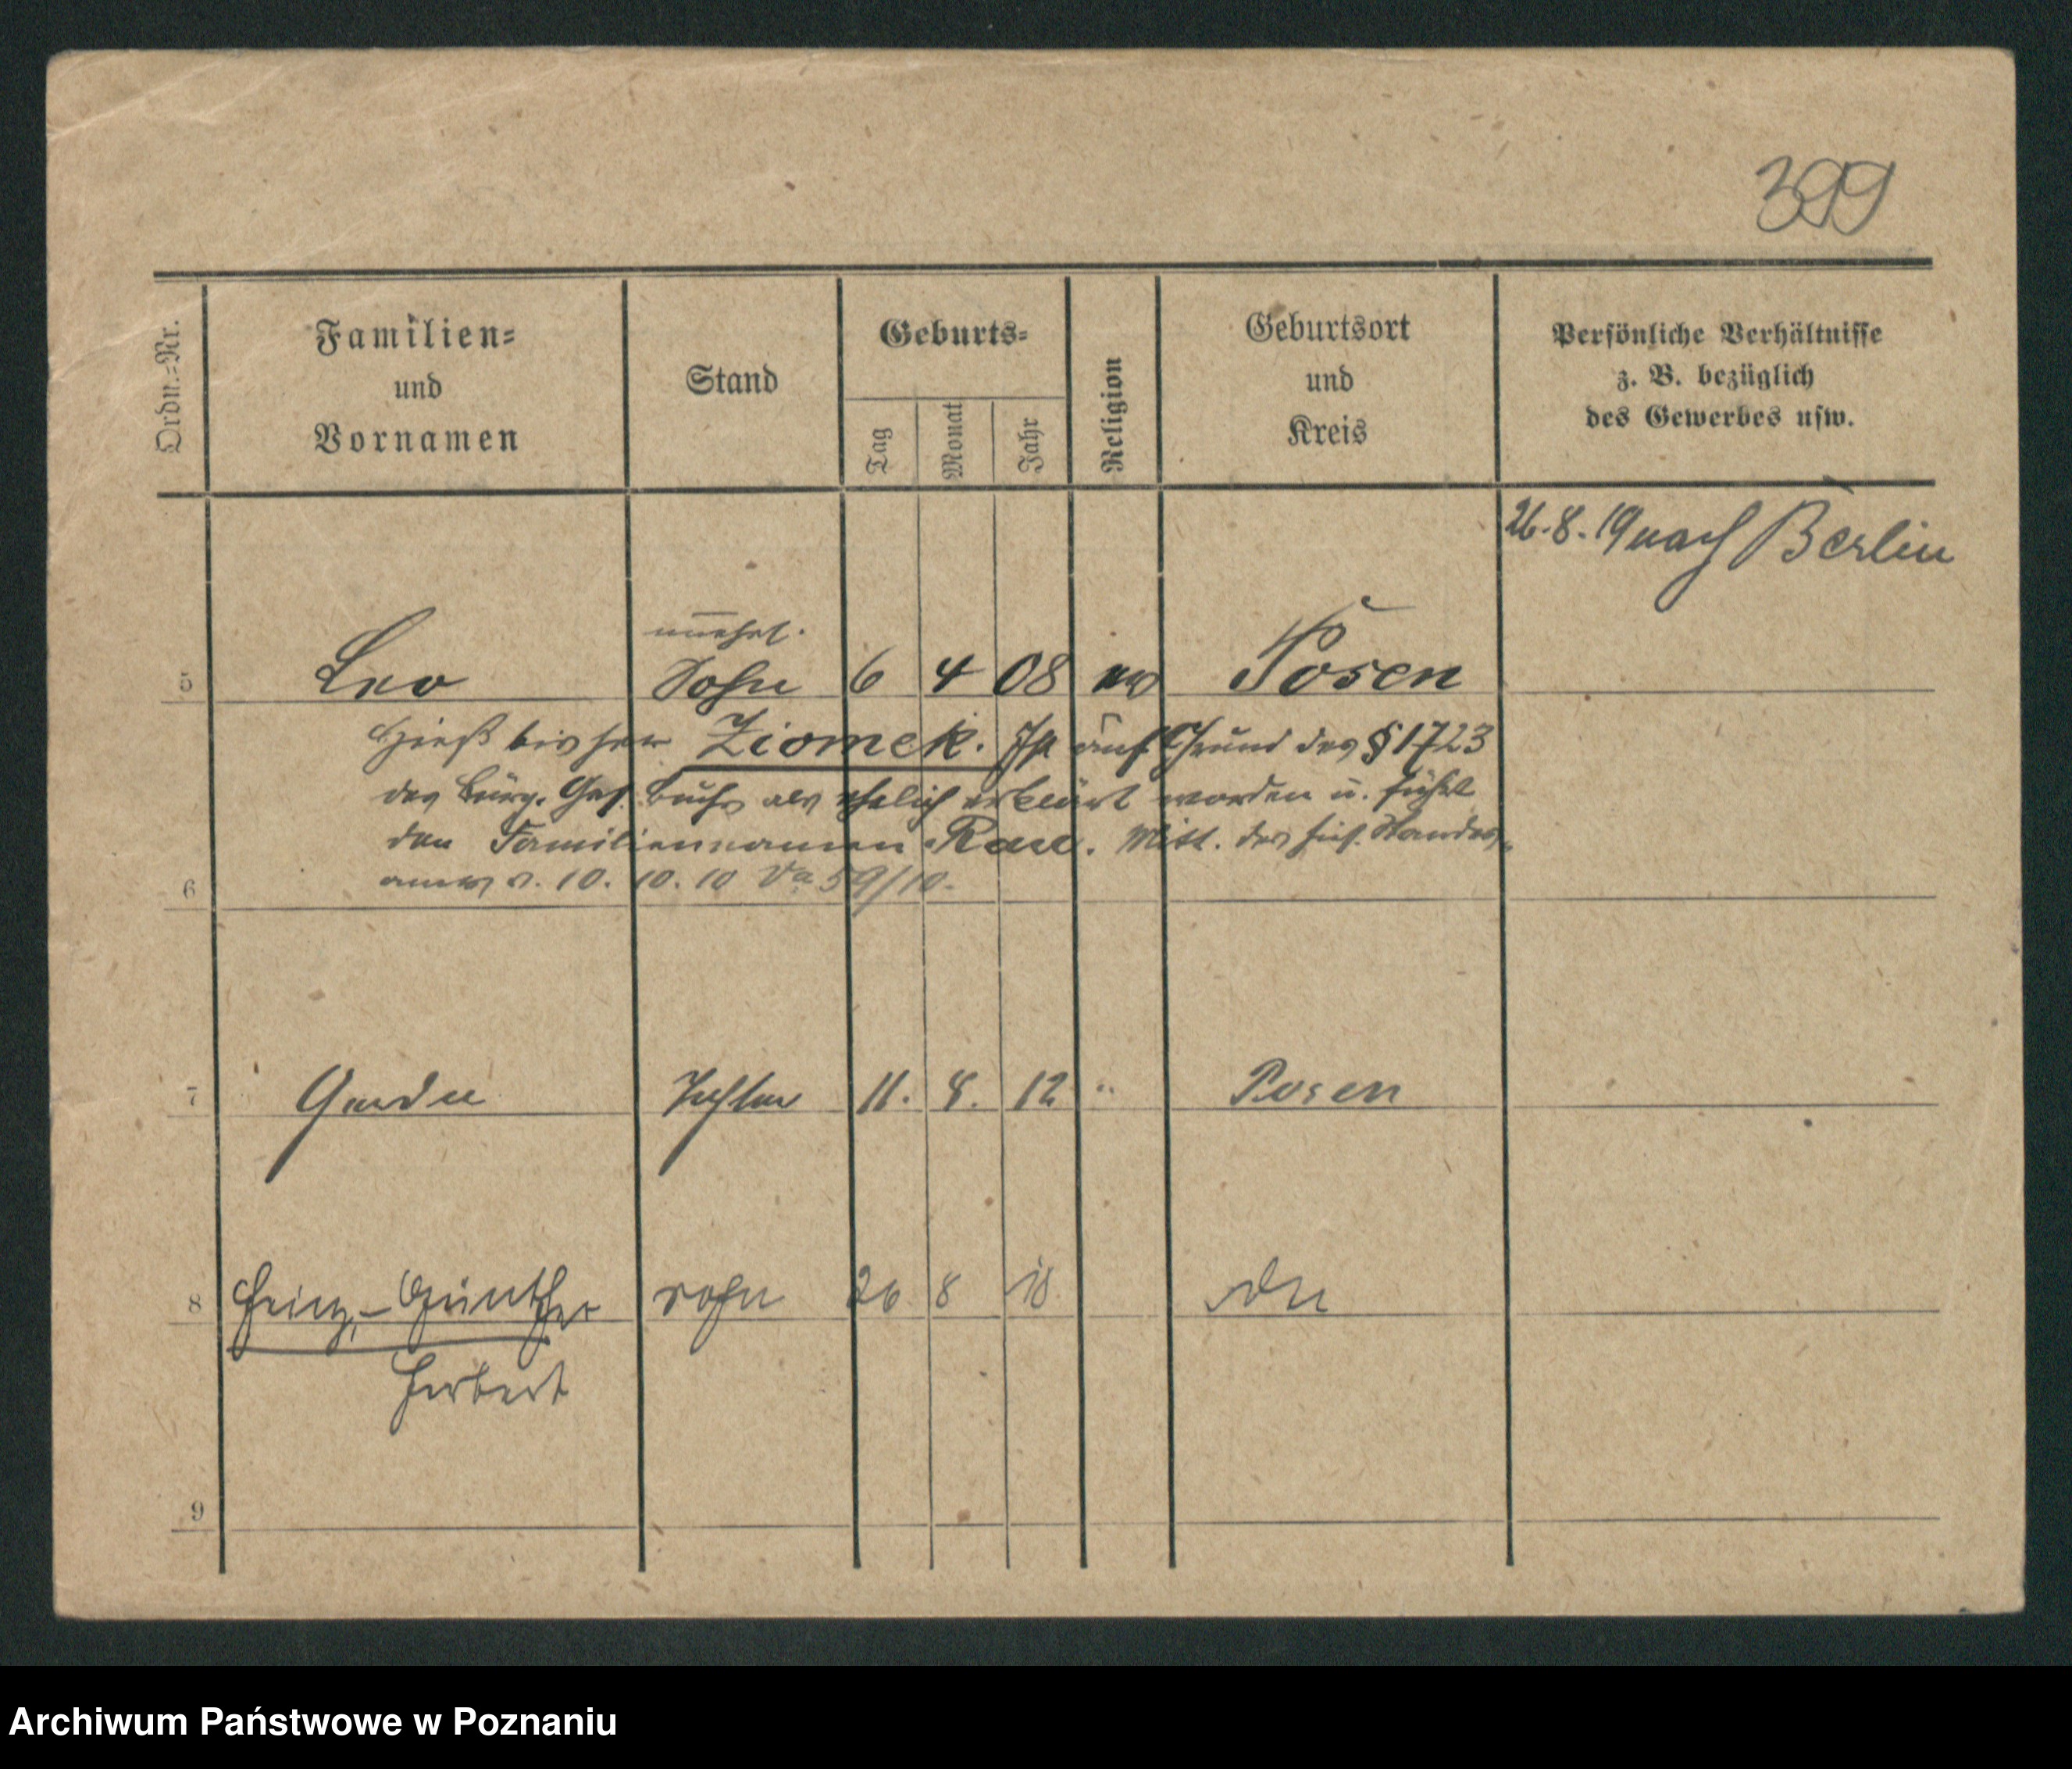 399
Ordn.=Nr.
Familien=
und
Vornamen
Stand
Geburts=
Tag
Monat
Jahr
Religion
Geburtsort
und
Kreis
Persönliche Verhältnisse
z. B. bezüglich
des Gewerbes usw.
26.8.19 nach Berlin
unehel.
5 Leo Sohn 6 4 08 ev Posen
Hieß bisher Ziomek. Ist auf Grund des § 1723
des Bürg. Ges. Buchs als ehelich erklärt worden u. führt
den Familiennamen. Mitt. des hies. Standes-
amts v. 10. 10. 10 Va 59/10.
6
7 Tochter 11. 8. 12 " Posen
8 Heinz,- Günther Sohn 26 8 18
Herbert
9
Archiwum Państwowe w Poznaniu